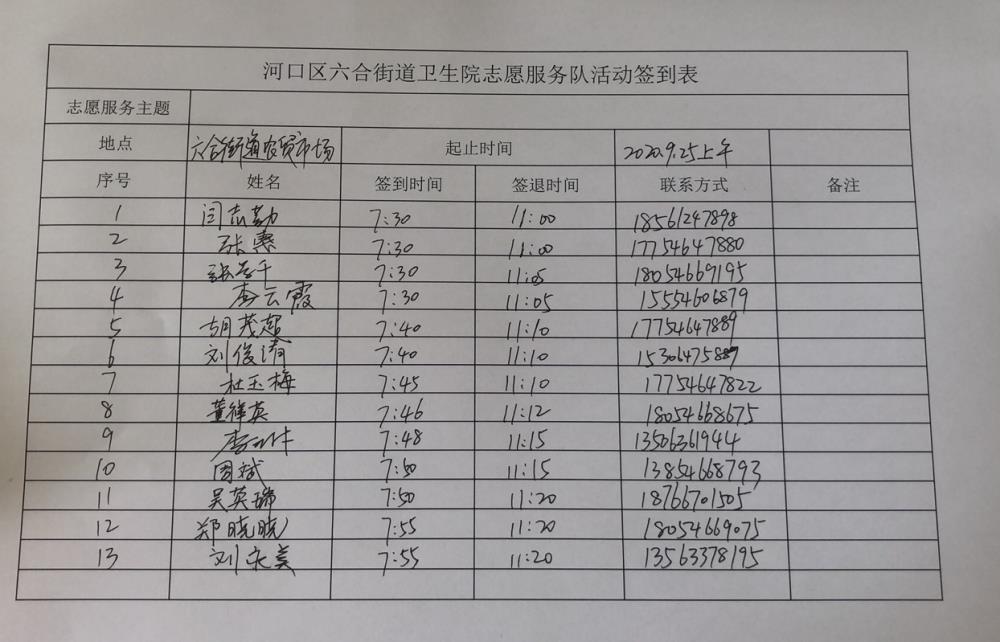 河口区六合街道卫生院志愿服务队活动签到表
志愿服务主题
地点 六合街道农贸市场 起止时间 2020.9.25上午
序号 姓名 签到时间 签退时间 联系方式 备注
1 闫志勤 7:30 11:00 18561247898
2 张惠 7:30 11:00 17754647880
3 7:30 11:05 18054669195
4 李云霞 7:30 11:05 15554606879
5 胡茂超 7:40 11:10 17754647889
6 刘俊清 7:40 11:10
7 杜玉梅 7:45 11:10 17754647822
8 董祥英 7:46 11:12 18054668675
9 7:48 11:15 13506361944
10 周斌 7:50 11:15 13854668793
11 吴英瑞 7:50 11:20 18766701505
12 郑晓晓 7:55 11:20 18054669075
13 7:55 11:20 13563378195